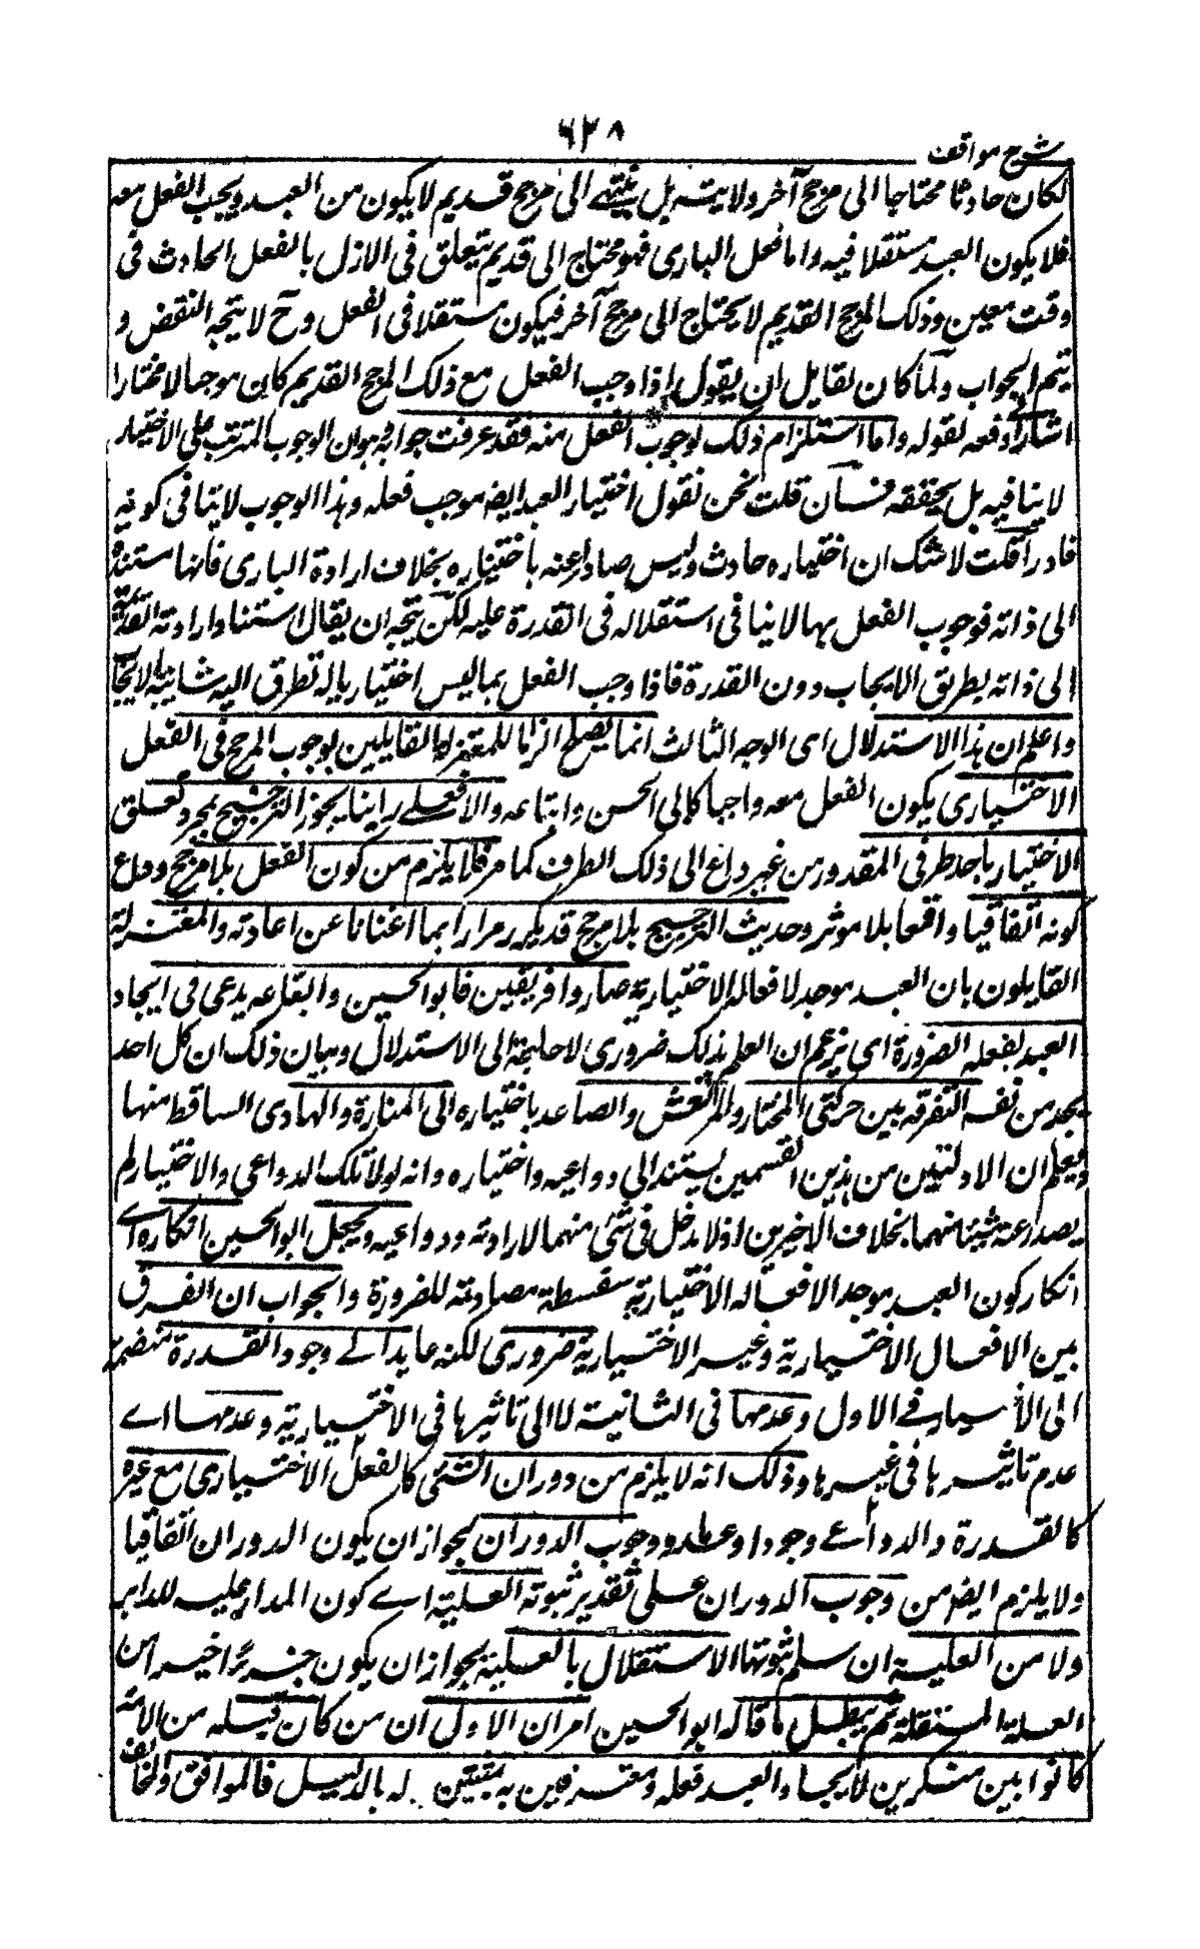 ٦٢٨
شرح مواقف
لكان حادثا محتاجا الى مرجح آخر ولا يتسـ بل ينتهے الى مرجح قديم لا يكون من العبد ويجب الفعل معه
فلا يكون العبد مستقلا فيه واما فعل البارى فهو محتاج الى قديم يتعلق فى الازل بالفعل الحادث فى
وقت معين وذلك المرجح القديم لا يحتاج الى مرجح آخر فيكون مستقلا فى الفعل وح لا يتجه النقض و
يتم الجواب ولما كان لقايل ان يقول اذا وجب الفعل مع ذلك المرجح القديم كان موجبا لا مختارا
اشار الى دفعه لقوله واما استلزام ذلك لوجوب الفعل منه فقد عرفت جوابه وهو ان الوجوب المترتب على الاختيار
لا ينافيه بل يحققه فـان قلت نحن نقول اختيار العبد ايضه موجب فعله وهذا الوجوب لا ينافى كونه
قادرا قلت لا شك ان اختياره حادث وليس صادرا عنه باختياره بخلاف ارادة البارى فانها مستندة
الى ذاته فوجوب الفعل بها لا ينافى استقلاله فى القدرة عليه لكن يتجه ان يقال استناد ارادته القديمة
الى ذاته بطريق الايجاب دون القدرة فاذا وجب الفعل بما ليس اختياريا له تطرق اليه شايبة الايجاب
واعلم ان هذا الاستدلال اى الوجه الثالث انما يصلح الزاما للمعتزلة القايلين بوجوب المرجح فى الفعل
الاختيارى يكون الفعل معه واجبا كابى الحسن واتباعه والا فعلے راينا يجوز الترجيح بمجرد تعلق
الاختيار باحد طرفى المقدور من غير داع الى ذلك الطرف كما مر فلا يلزم من كون الفعل بلا مرجح وداع
كونه اتفاقيا واقعا بلا موثر وحديث الترجيح بلا مرجح قد تكرر مرارا بما اغنانا عن اعادته والمعتزلة
القايلون بان العبد موجد لافعاله الاختيارية صاروا فريقين فابو الحسين واتباعه يدعى فى ايجاد
العبد لفعله الضرورة اى يزعم ان العلم بذلك ضرورى لا حاجة الى الاستدلال وبيان ذلك ان كل احد
يجد من نفسه التفرقة بين حركتى المختار والمرتعش والصاعد باختياره الى المنارة والهادى الساقط منها
ويعلم ان الاولتين من هذين القسمين يستند الى دواعيه واختياره وانه لولا تلك الدواعى والاختيار لم
يصدر عنه شيئا منهما بخلاف الاخيرين اذ لا مدخل فى شئ منهما لارادته ودواعيه ويجعل ابو الحسين انكاره اے
انكار كون العبد موجد الافعاله الاختيارية سفسطة مصادمة للضرورة والجواب ان الفرق
بين الافعال الاختيارية وغير الاختيارية ضرورى لكنه عايد الے وجود القدرة منضمة
الى الاختيار فے الاول وعدمها فى الثانية لا الى تاثيرها فى الاختيارية وعدمها اے
عدم تاثيرها فى غيرها وذلك انه لا يلزم من دوران الشئ كالفعل الاختيارى مع غيره
كالقدرة والدواعے وجودا وعدما وجوب الدوران لجواز ان يكون الدوران اتفاقيا
ولا يلزم ايضه من وجوب الدوران على تقدير ثبوته العلية اے كون المدار علية للداير
ولا من العلية ان سلم ثبوتها الاستقلال بالعلية لجواز ان يكون جزءا اخيرا من
العلة المستقلة ثم يبطل ما قاله ابو الحسين امران الاول ان من كان قبله من الائمة
كانوا بين منكرين لايجاد العبد فعله ومعترفين به مثبتين له بالدليل فالموافق والمخالف